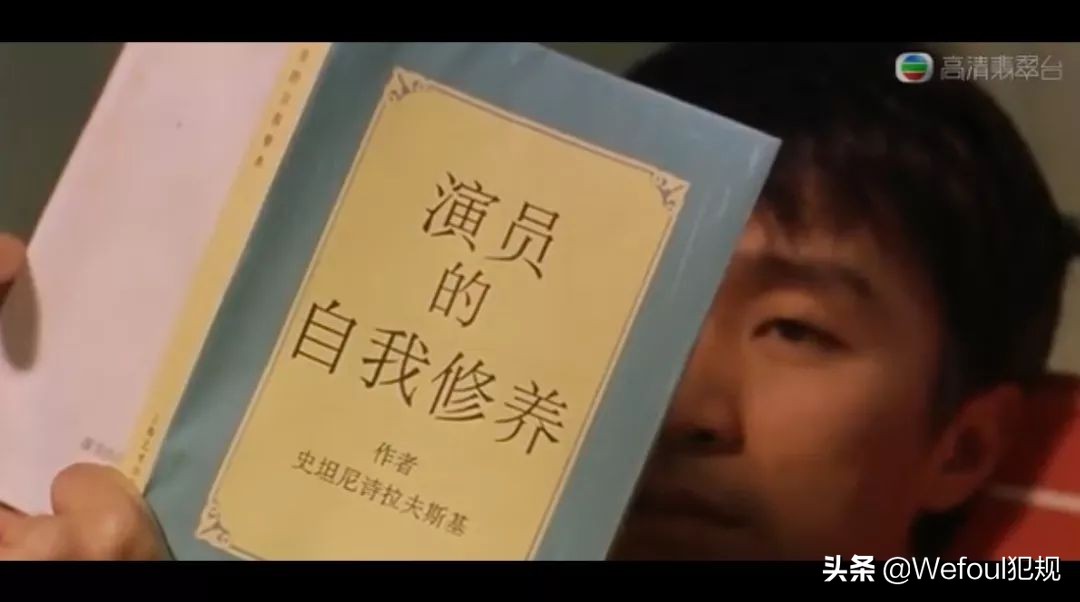 高清翡翠台
演员
的
自我修养
作者
史坦尼诗拉夫斯基
头条 @Wefoul犯规